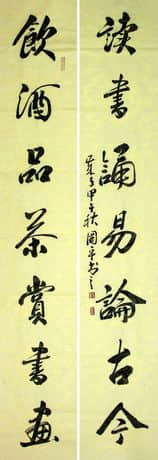 讀書誦易論古今
甲午秋
飲酒品茶賞書畫